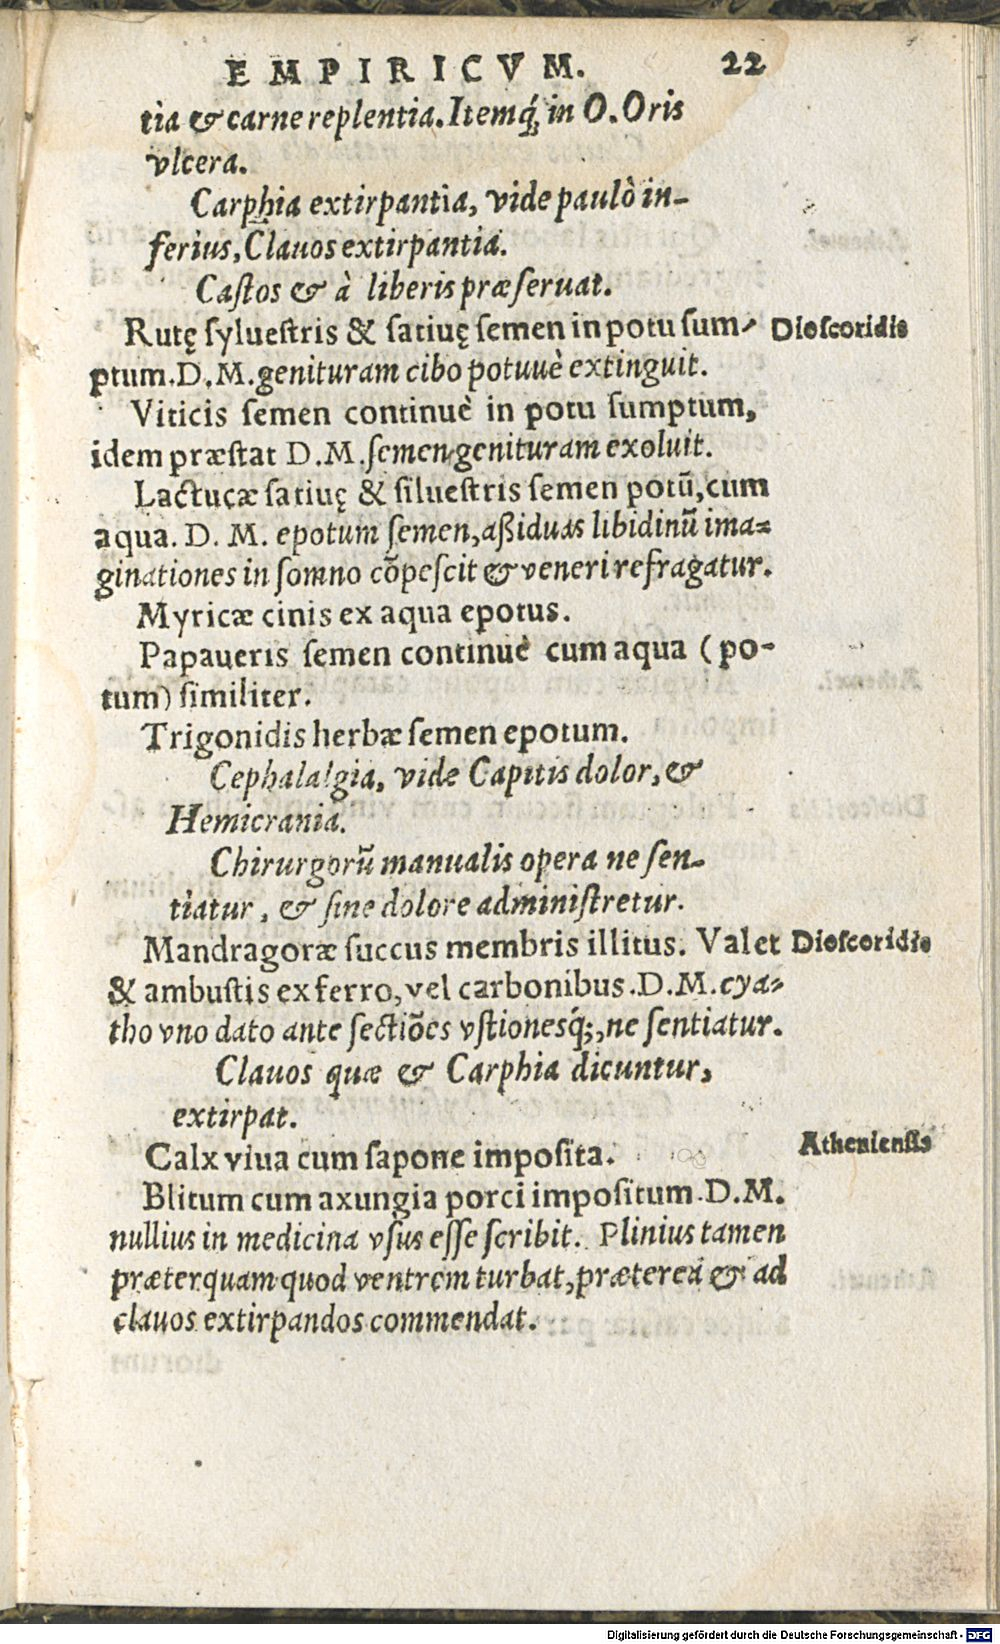 EMPIRICVM. 22
tia & carne replentia. Itemq́; in O. Oris
vlcera.
Carphia extirpantia, vide paulò in-
feriùs, Clauos extirpantia.
Castos & à liberis præseruat.
Rutę syluestris & satiuę semen in potu sum- Dioscoridis
ptum. D. M. genituram cibo potuuè extinguit.
Viticis semen continuè in potu sumptum,
idem præstat D. M. semen genituram exoluit.
Lactucæ satiuę & siluestris semen potū, cum
aqua. D. M. epotum semen, aßiduas libidinū ima-
ginationes in somno cōpescit & veneri refragatur.
Myricæ cinis ex aqua epotus.
Papaueris semen continuè cum aqua (po-
tum) similiter.
Trigonidis herbæ semen epotum.
Cephalalgia, vide Capitis dolor, &
Hemicrania.
Chirurgorū manualis opera ne sen-
tiatur, & sine dolore administretur.
Mandragoræ succus membris illitus. Valet Dioscoridis
& ambustis ex ferro, vel carbonibus. D. M. cya-
tho vno dato ante sectiōes vstionesq́;, ne sentiatur.
Clauos quæ & Carphia dicuntur,
extirpat.
Calx viua cum sapone imposita. Atheniensis
Blitum cum axungia porci impositum. D. M.
nullius in medicina vsus esse scribit. Plinius tamen
præterquam quod ventrem turbat, præterea & ad
clauos extirpandos commendat.
Digitalisierung gefördert durch die Deutsche Forschungsgemeinschaft - DFG